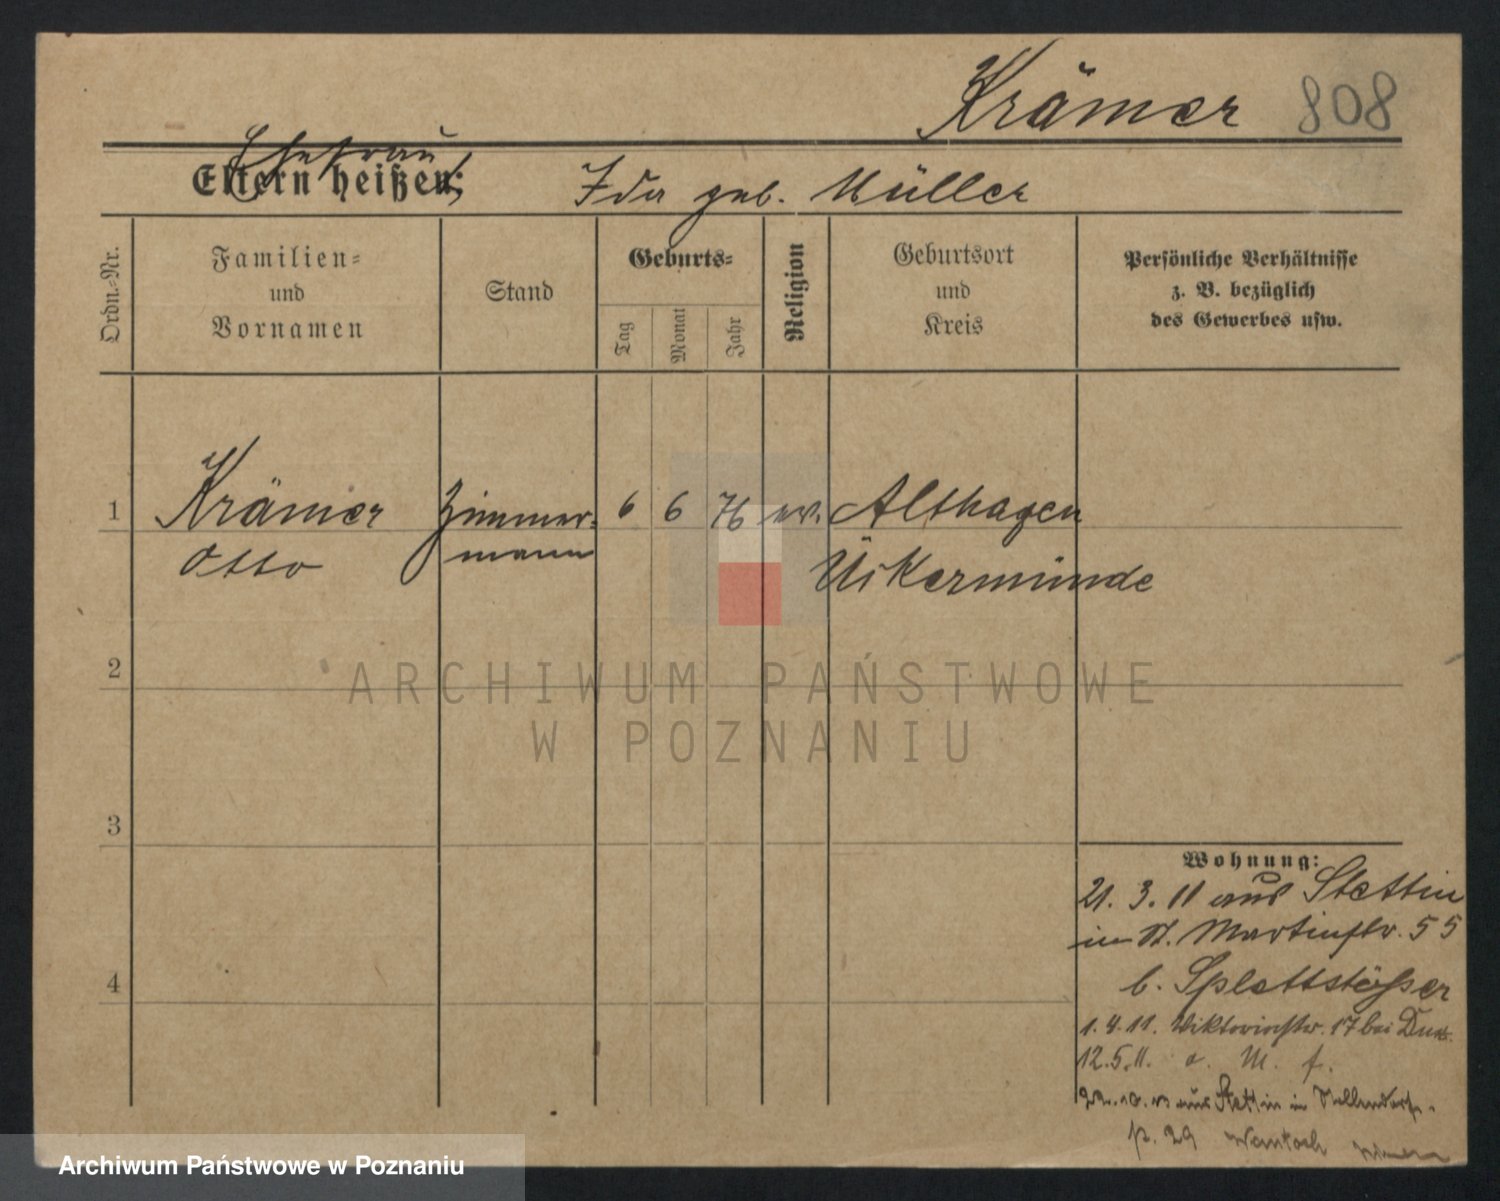 Krämer 808
Ehefrau
Eltern heißen: Ida geb. Müller
Ordn.-Nr.
Familien-
und
Vornamen
Stand
Geburts-
Tag
Monat
Jahr
Religion
Geburtsort
und
Kreis
Persönliche Verhältnisse
z. B. bezüglich
des Gewerbes usw.
1 Krämer Zimmer- 6 6 76 ev. Althagen
Otto mann Ükermünde
2
3
4
Wohnung:
21. 3. 11 aus Stettin
in St. Martinstr. 55
b. Splettstößer
1. 4. 11. Viktoriastr. 17 bei
12.5.11. a. M. f.
aus Stettin in
p. 29
ARCHIWUM PAŃSTWOWE
W POZNANIU
Archiwum Państwowe w Poznaniu